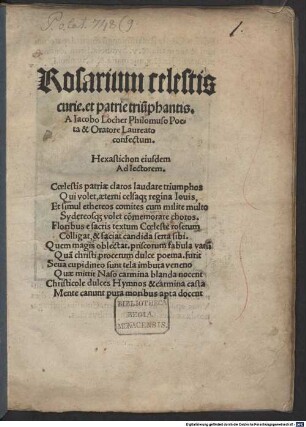 Palat. 743(9.
1.
Rosarium celestis
curie. et patrie triũphantis.
A Iacobo Locher Philomuso Poe-
ta & Oratore Laureato
confectum.
Hexastichon eiusdem
Ad lectorem.
Cœlestis patriæ claros laudare triumphos
Qui volet, æterni celsaq; regna Iouis,
Et simul ethereos comites cum milite multo
Sydereosq; volet cõmemorare choros.
Floribus e sacris textum Cœleste rosetum
Colligat, & faciat candida serta sibi.
Quem magis oblectat, priscorum fabula vatũ
Quã christi procerum dulce poema, fugit
Seua cupidineo sunt tela imbuta veneno
Quæ mittit Naso carmina blanda nocent
Christicole dulces Hymnos & carmina casta
Mente canunt pura moribus apta docent
BIBLIOTHECA
REGIA
MONACENSIS.